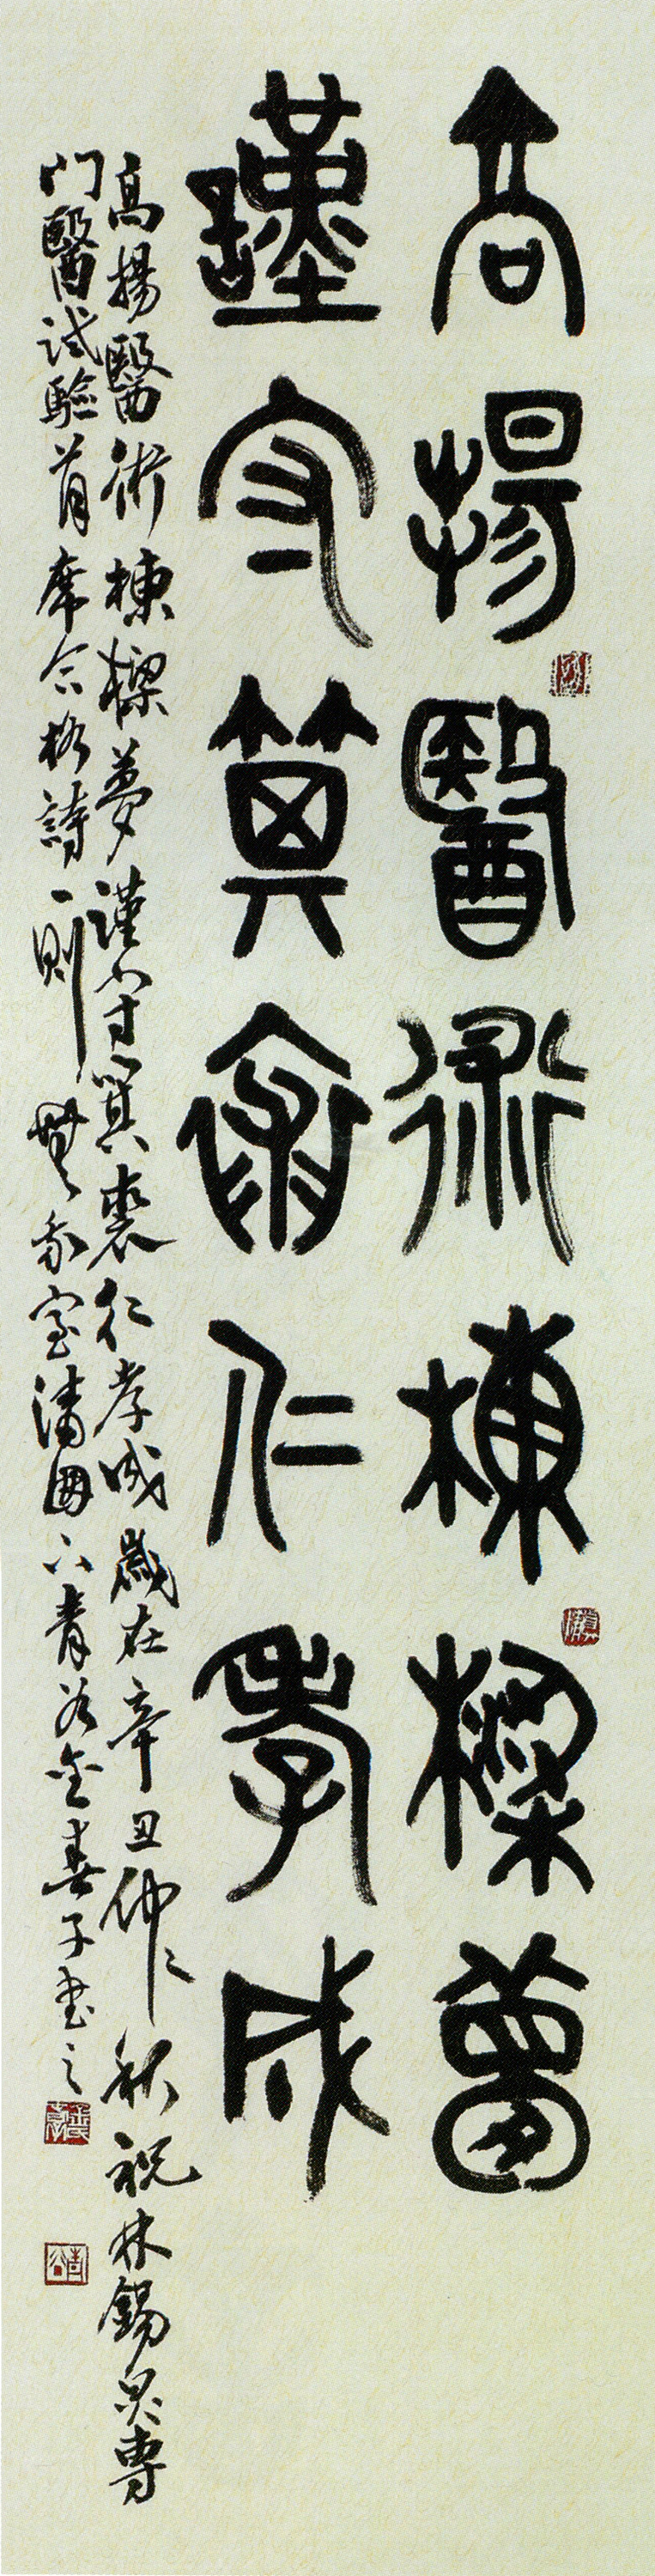 高揚醫術棟樑夢
謹守箕裘仁孝成
高揚醫術棟樑夢謹守箕裘仁孝成歲在辛丑仲之秋祝林錫泉專
门醫試驗首席合格詩一則 無我室潘國 六青 金春子書之